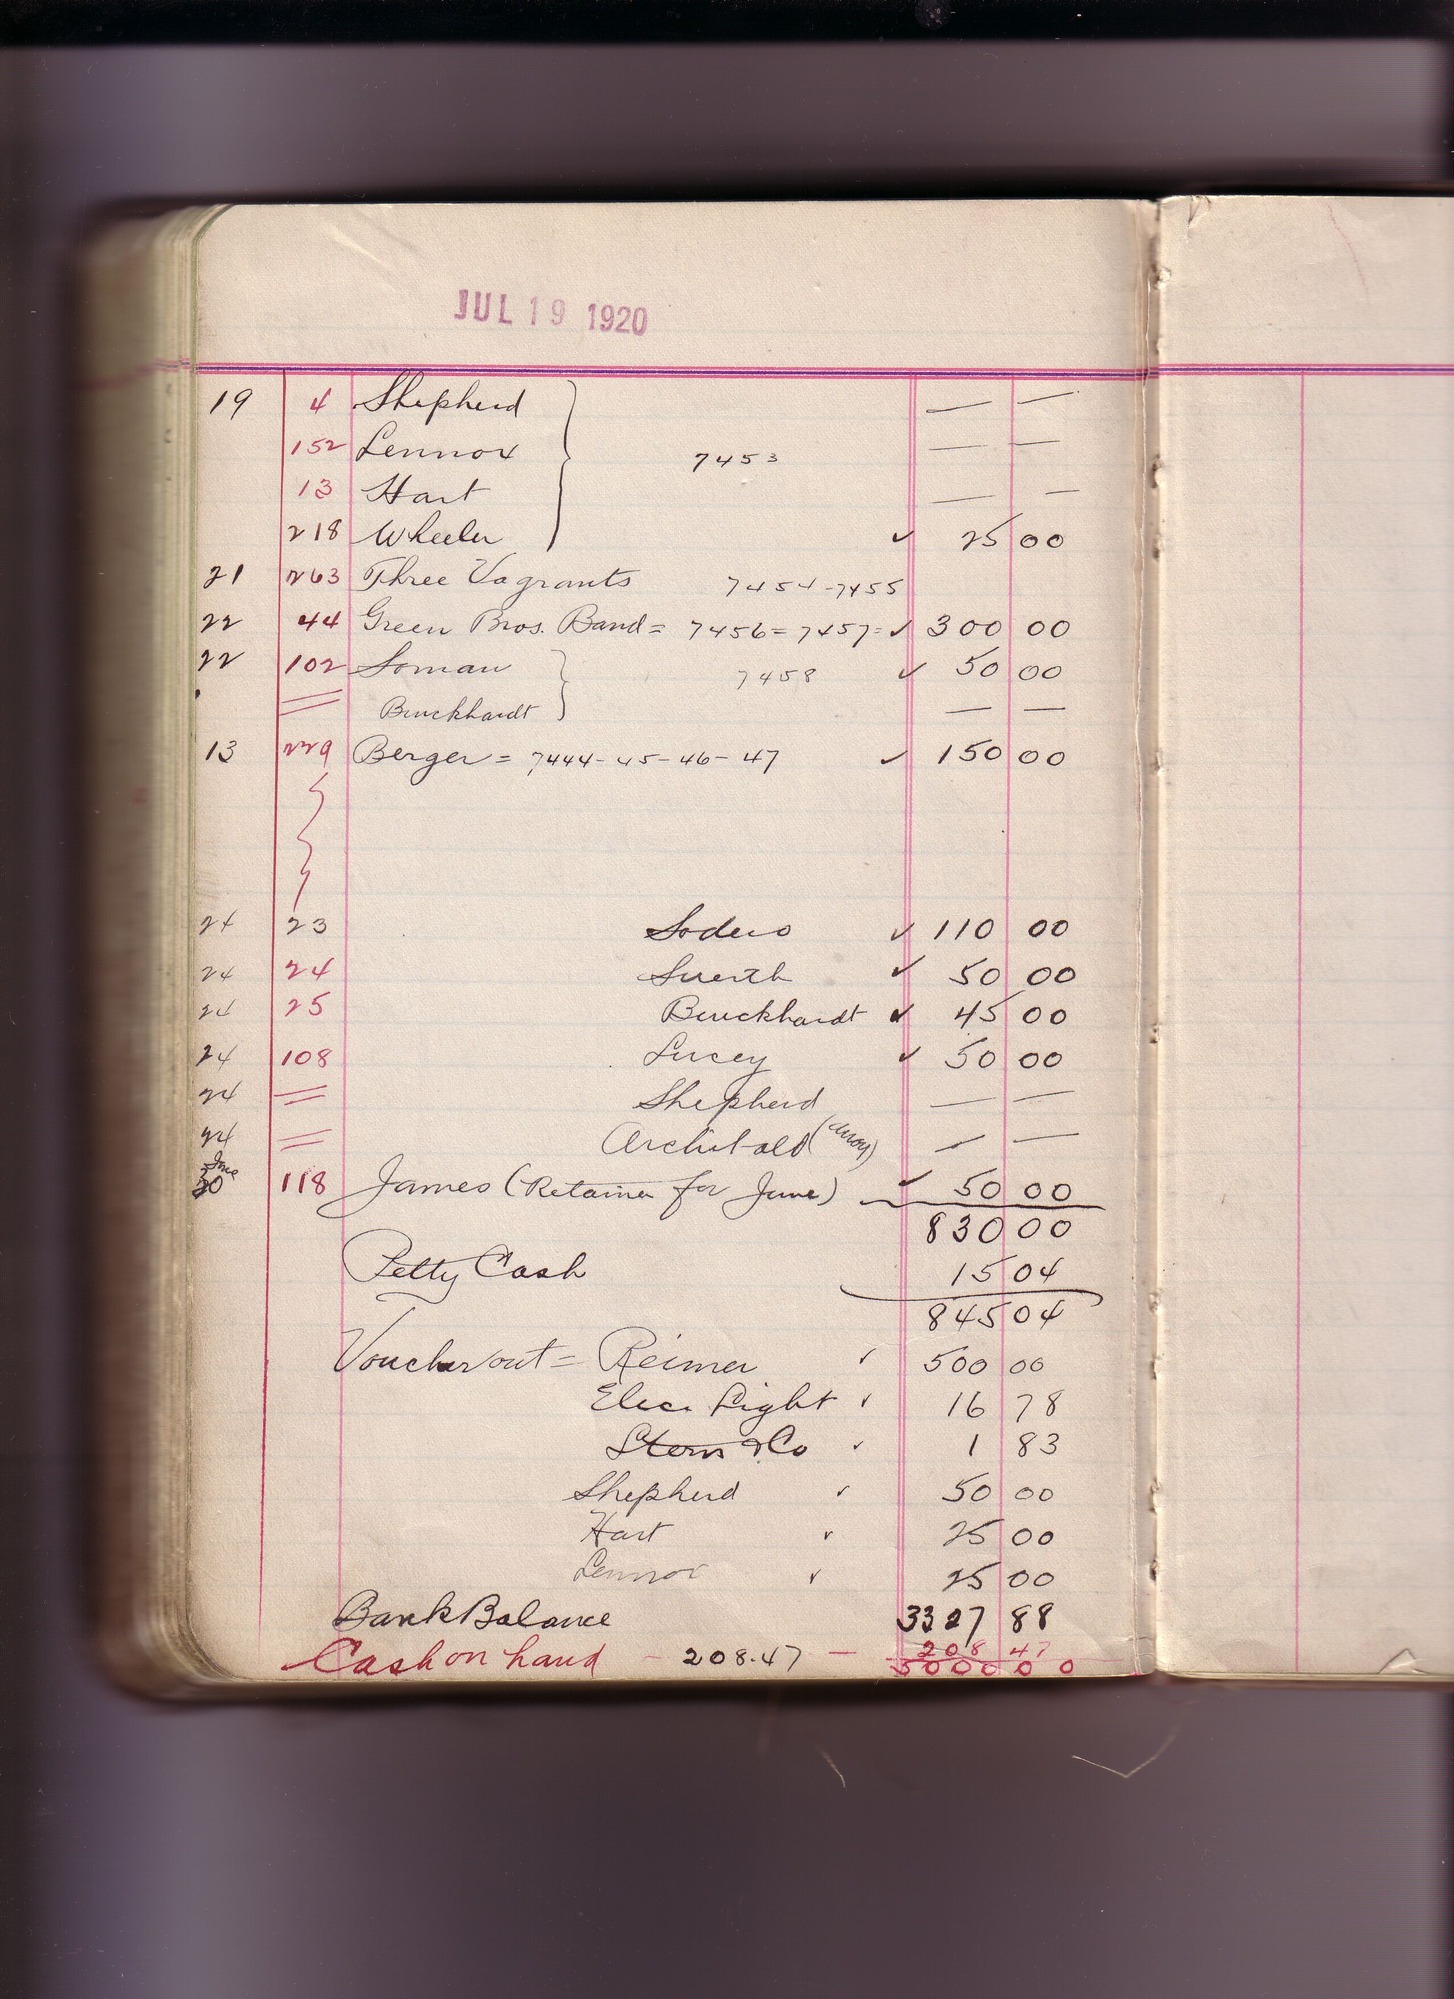 JUL 19 1920
19 4 Shepherd — —
152 Lennox 7453 — —
13 Hart — —
218 Wheeler ✓ 25 00
21 263 Three Vagrants 7454-7455
22 44 Green Bros. Band = 7456 = 7457 = ✓ 300 00
22 102 Soman 7458 ✓ 50 00
" Burckhardt — —
13 229 Berger = 7444-45-46-47 ✓ 150 00
24 23 Sodero ✓ 110 00
24 24 ✓ 50 00
24 25 Burckhardt ✓ 45 00
24 108 Lucey ✓ 50 00
24 " Shepherd — —
24 " Archibald — —
June 30 118 James (Retainer for June) ✓ 50 00
830 00
Petty Cash 15 04
845 04
Voucher out = Reimer ✓ 500 00
Elec. Light ✓ 16 78
Stern & Co ✓ 1 83
Shepherd ✓ 50 00
Hart ✓ 25 00
Lennox ✓ 25 00
Bank Balance 3327 88
Cash on hand - 208.47 — 208 47
5000 00